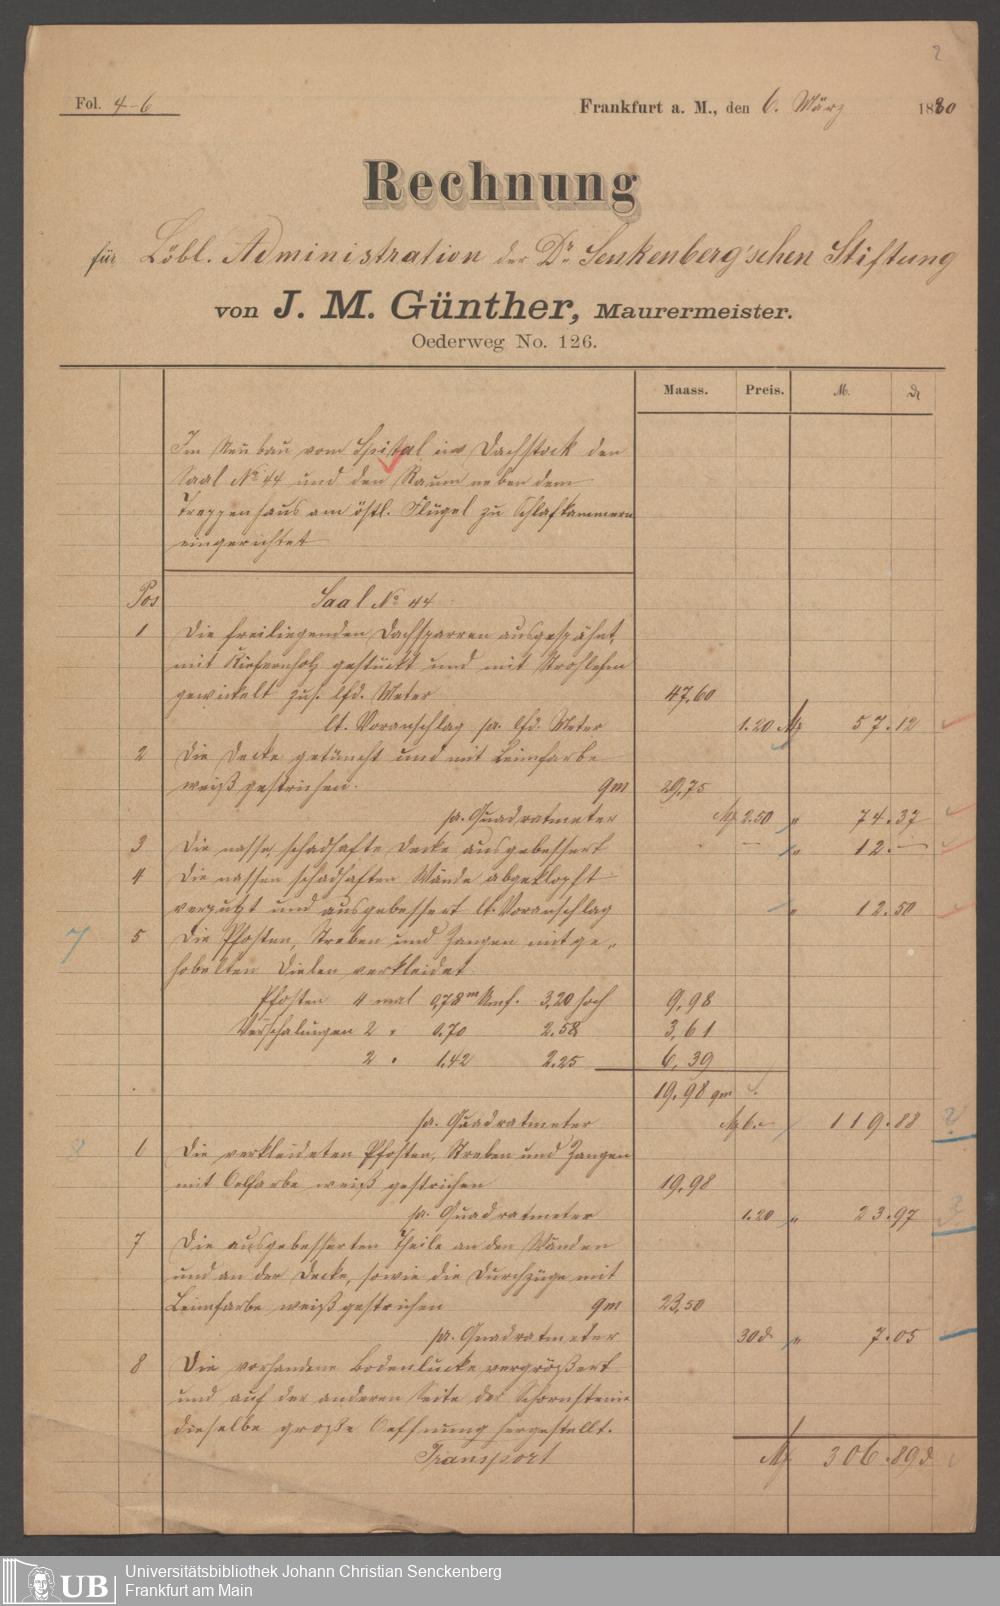 2
Fol. 4-6
Frankfurt a. M., den 6. März 1880
Rechnung
für Löbl. Administration der Dr. Senkenberg'schen Stiftung
von J. M. Günther, Maurermeister.
Oederweg No. 126.
Maass. Preis. M. d
Im Neubau vom Spital im Dachstock den
Saal No 44 und den Raum neben dem
Treppenhaus am östl. Flügel zu Schlafkammern
eingerichtet
Pos Saal No 44
1 Die freiliegenden Dachsparren ausgespähnt,
mit Kiefernholz gestückt und mit Strohlehm
gewickelt zus. lfd. Meter 47,60
lt. Voranschlag pa. lfd. Meter 1.20 M 57.12
2 Die Decke getüncht und mit Leimfarbe
weiß gestrichen. qm 29,75
pa. Quadratmeter M 2.50 " 74.37
3 Die nasse, schadhafte Decke ausgebessert — " 12.—
4 Die nassen schadhaften Wände abgeklopft
verputzt und ausgebessert lt. Voranschlag " 12.50
7 5 Die Pfosten, Streben und Zangen mit ge„
hobelten Dielen verkleidet
Pfosten 4 mal 0,78 m Umf. 3,20 hoch 9,98
Verschalungen 2 " 0.70 2.58 3,61
2 " 1.42 2.25 6,39
19,98 qm
pa. Quadratmeter M 6.— 119.88 2
8 6 Die verkleideten Pfosten, Streben und Zangen
mit Oelfarbe weiß gestrichen 19,98
pa. Quadratmeter 1.20 " 23.97 3
7 Die ausgebesserten Theile an den Wänden
und an der Decke, sowie die Durchzüge mit
Leimfarbe weiß gestrichen qm 23,50
pa. Quadratmeter 30 d " 7.05
8 Die vorhandene Bodenlucke vergrößert
und auf der anderen Seite des Schornsteins
dieselbe große Oeffnung hergestellt.
Transport M 306.89 d
UB
Universitätsbibliothek Johann Christian Senckenberg
Frankfurt am Main